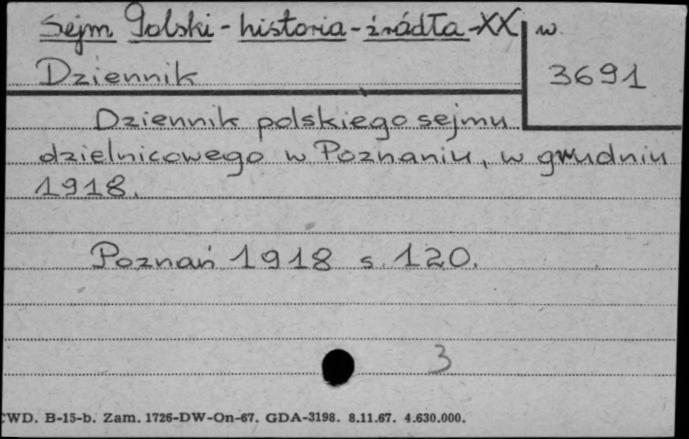 Sejm Polski - historia - źródła - XX w.
Dziennik
3691
Dziennik polskiego sejmu
dzielnicowego w Poznaniu, w grudniu
1918.
Poznań 1918 s. 120.
3
CWD. B-15-b. Zam. 1726-DW-On-67. GDA-3198. 8.11.67. 4.630.000.